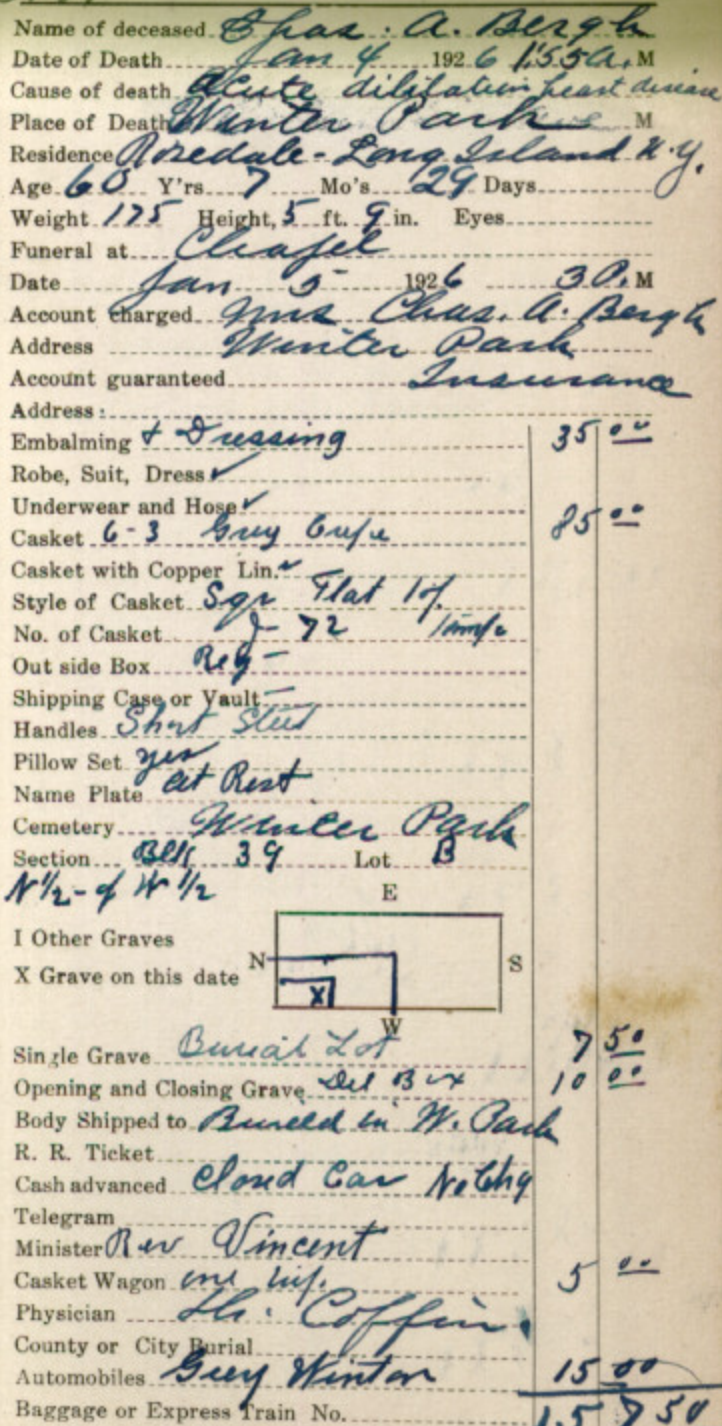 Name of deceased Chas. A. Bergh
Date of Death Jan 4 1926 1:55 a. M
Cause of death Acute dilitation heart disease
Place of Death Winter Park M
Residence Rosedale - Long Island N.Y.
Age 60 Y'rs 7 Mo's 29 Days
Weight 175 Height, 5 ft. 9 in. Eyes
Funeral at Chapel
Date Jan 5 1926 3 P. M
Account charged Mrs Chas. A. Bergh
Address Winter Park
Account guaranteed Insurance
Address:
Embalming & Dressing 35 00
Robe, Suit, Dress ✓
Underwear and Hose ✓
Casket 6-3 Grey Crepe 85 00
Casket with Copper Lin. ✓
Style of Casket Sqr Flat Top
No. of Casket J- 72
Out side Box Reg -
Shipping Case or Vault -
Handles Short Steel
Pillow Set yes
Name Plate At Rest
Cemetery Winter Park
Section Blk 39 Lot B
N 1/2 - of W 1/2
E
I Other Graves
N S
X Grave on this date
X
W
Single Grave Burial Lot 7 50
Opening and Closing Grave Del Box 10 00
Body Shipped to Bureld in W. Park
R. R. Ticket
Cash advanced Closed Car No Chg
Telegram
Minister Rev Vincent
Casket Wagon 5 00
Physician Coffin.
County or City Burial
Automobiles Grey Winton 15 00
Baggage or Express Train No. 157 50